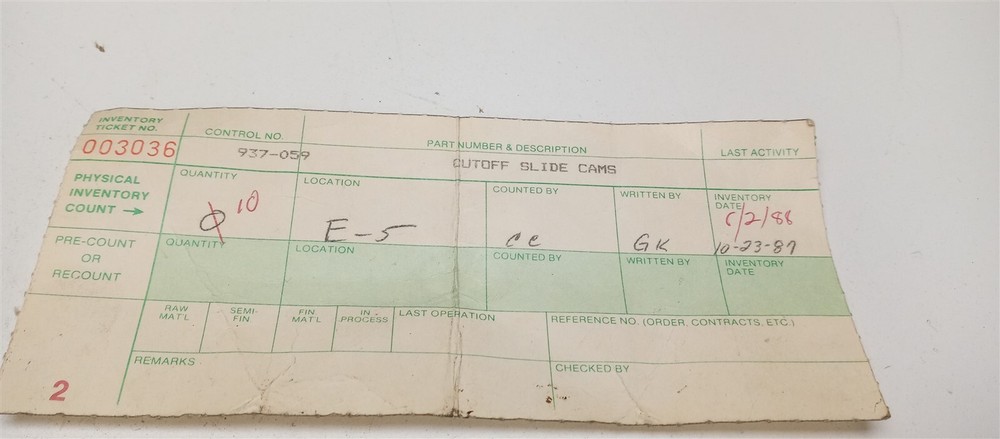 INVENTORY
TICKET NO.
003036
CONTROL NO.
937-059
PART NUMBER & DESCRIPTION
CUTOFF SLIDE CAMS
LAST ACTIVITY
PHYSICAL
INVENTORY
COUNT →
QUANTITY
0 10
LOCATION
E-5
COUNTED BY
cc
WRITTEN BY
GK
INVENTORY
DATE
10-23-87
PRE-COUNT
OR
RECOUNT
QUANTITY
LOCATION
COUNTED BY
WRITTEN BY
INVENTORY
DATE
RAW
MAT'L
SEMI-
FIN
FIN
MAT'L
IN
PROCESS
LAST OPERATION
REFERENCE NO. (ORDER, CONTRACTS, ETC.)
REMARKS
CHECKED BY
2